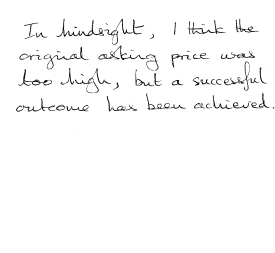 In hindsight, I think the
original asking price was
too high, but a successful
outcome has been achieved.